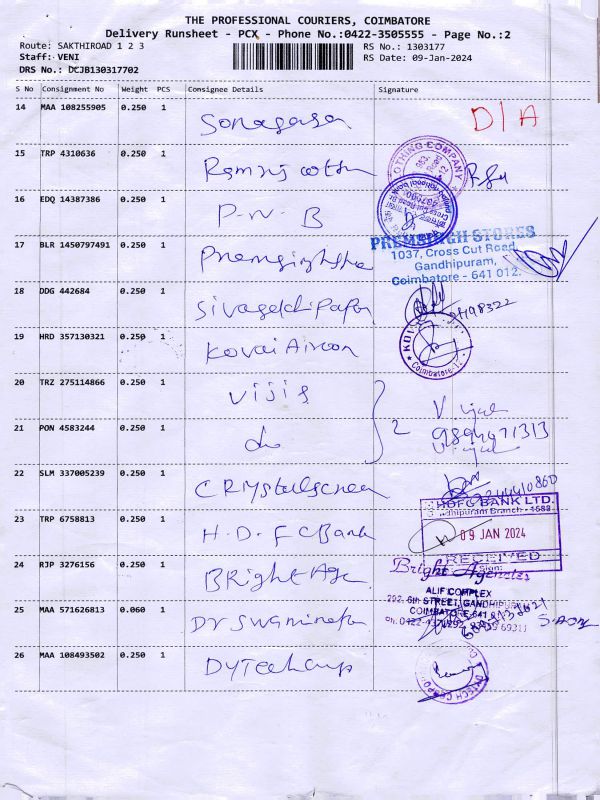 THE PROFESSIONAL COURIERS, COIMBATORE
Delivery Runsheet - PCX - Phone No.:0422-3505555 - Page No.:2
Route: SAKTHIROAD 1 2 3
RS No.: 1303177
Staff: VENI
RS Date: 09-Jan-2024
DRS No.: DCJB130317702
S No Consignment No Weight PCS Consignee Details Signature
14 MAA 108255905 0.250 1
D/A
15 TRP 4310636 0.250 1
OTHING COMPANY
16 EDQ 14387386 0.250 1 P.N.B
17 BLR 1450797491 0.250 1
PREMSINGH STORES
1037, Cross Cut Road,
Gandhipuram,
Coimbatore - 641 012.
18 DDG 442684 0.250 1
19 HRD 357130321 0.250 1 Kovai Aircon
Coimbatore-12
20 TRZ 275114866 0.250 1 Vijis
21 PON 4583244 0.250 1 do 2
22 SLM 337005239 0.250 1 CRystalscreen
23 TRP 6758813 0.250 1 H.D.FC Bank
HDFC BANK LTD.
Gandhipuram Branch - 1588
09 JAN 2024
RECEIVED
Sign:
24 RJP 3276156 0.250 1 BRight Age
Bright Agencies
ALIF COMPLEX
292, 6th STREET, GANDHIPURAM
COIMBATORE-641
25 MAA 571626813 0.060 1
26 MAA 108493502 0.250 1